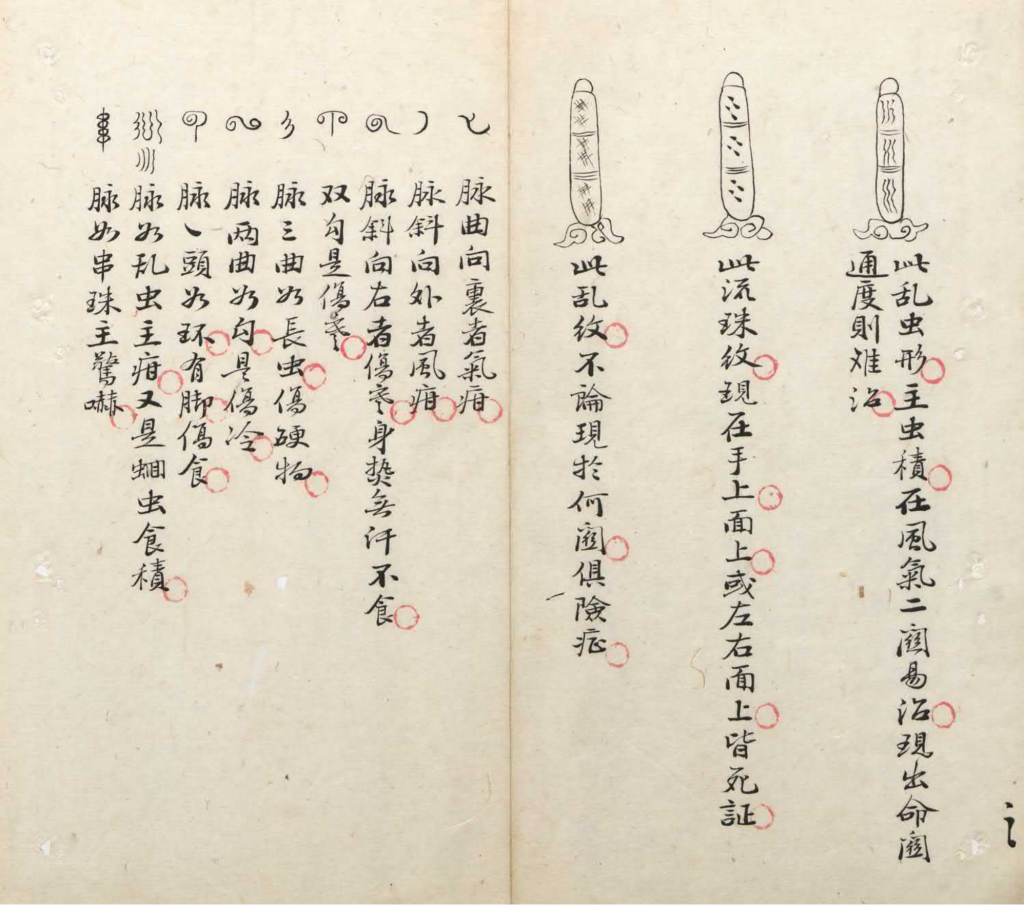 此乱虫形主虫積在風氣二関易治現出命関
通度則难治
此流珠纹現在手上面上或左右面上皆死証
此乱纹不論現於何関俱險症
脉曲向裏者氣疳
脉斜向外者風疳
脉斜向右者傷寒身热無汗不食
双勾是傷寒
脉三曲如長虫傷硬物
脉两曲如勾是傷冷
脉乀頭如环有脚傷食
脉如乱虫主疳又是蛔虫食積
脉如串珠主驚嚇